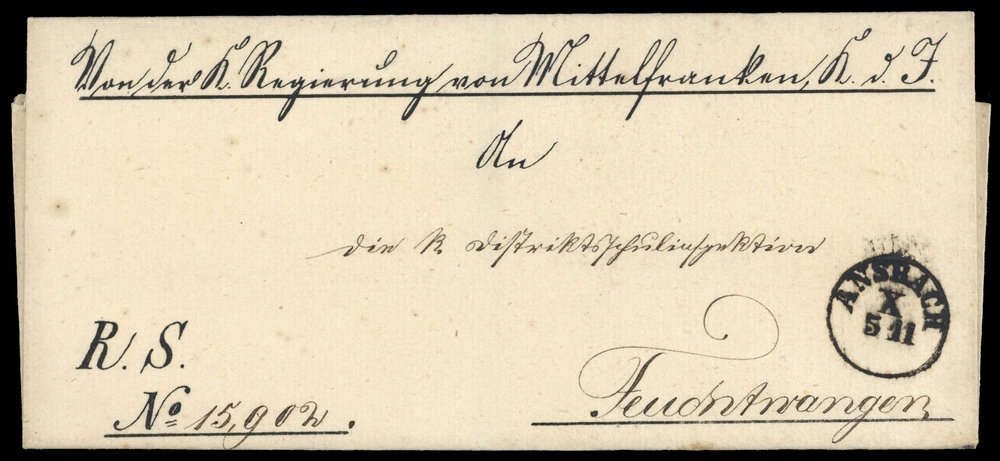 Von der K. Regierung von Mittelfranken, K. d. I.
An
die K. Distriktsschulinspektion
ANSBACH
X
5 11
R. S.
No 15,902.
Feuchtwangen